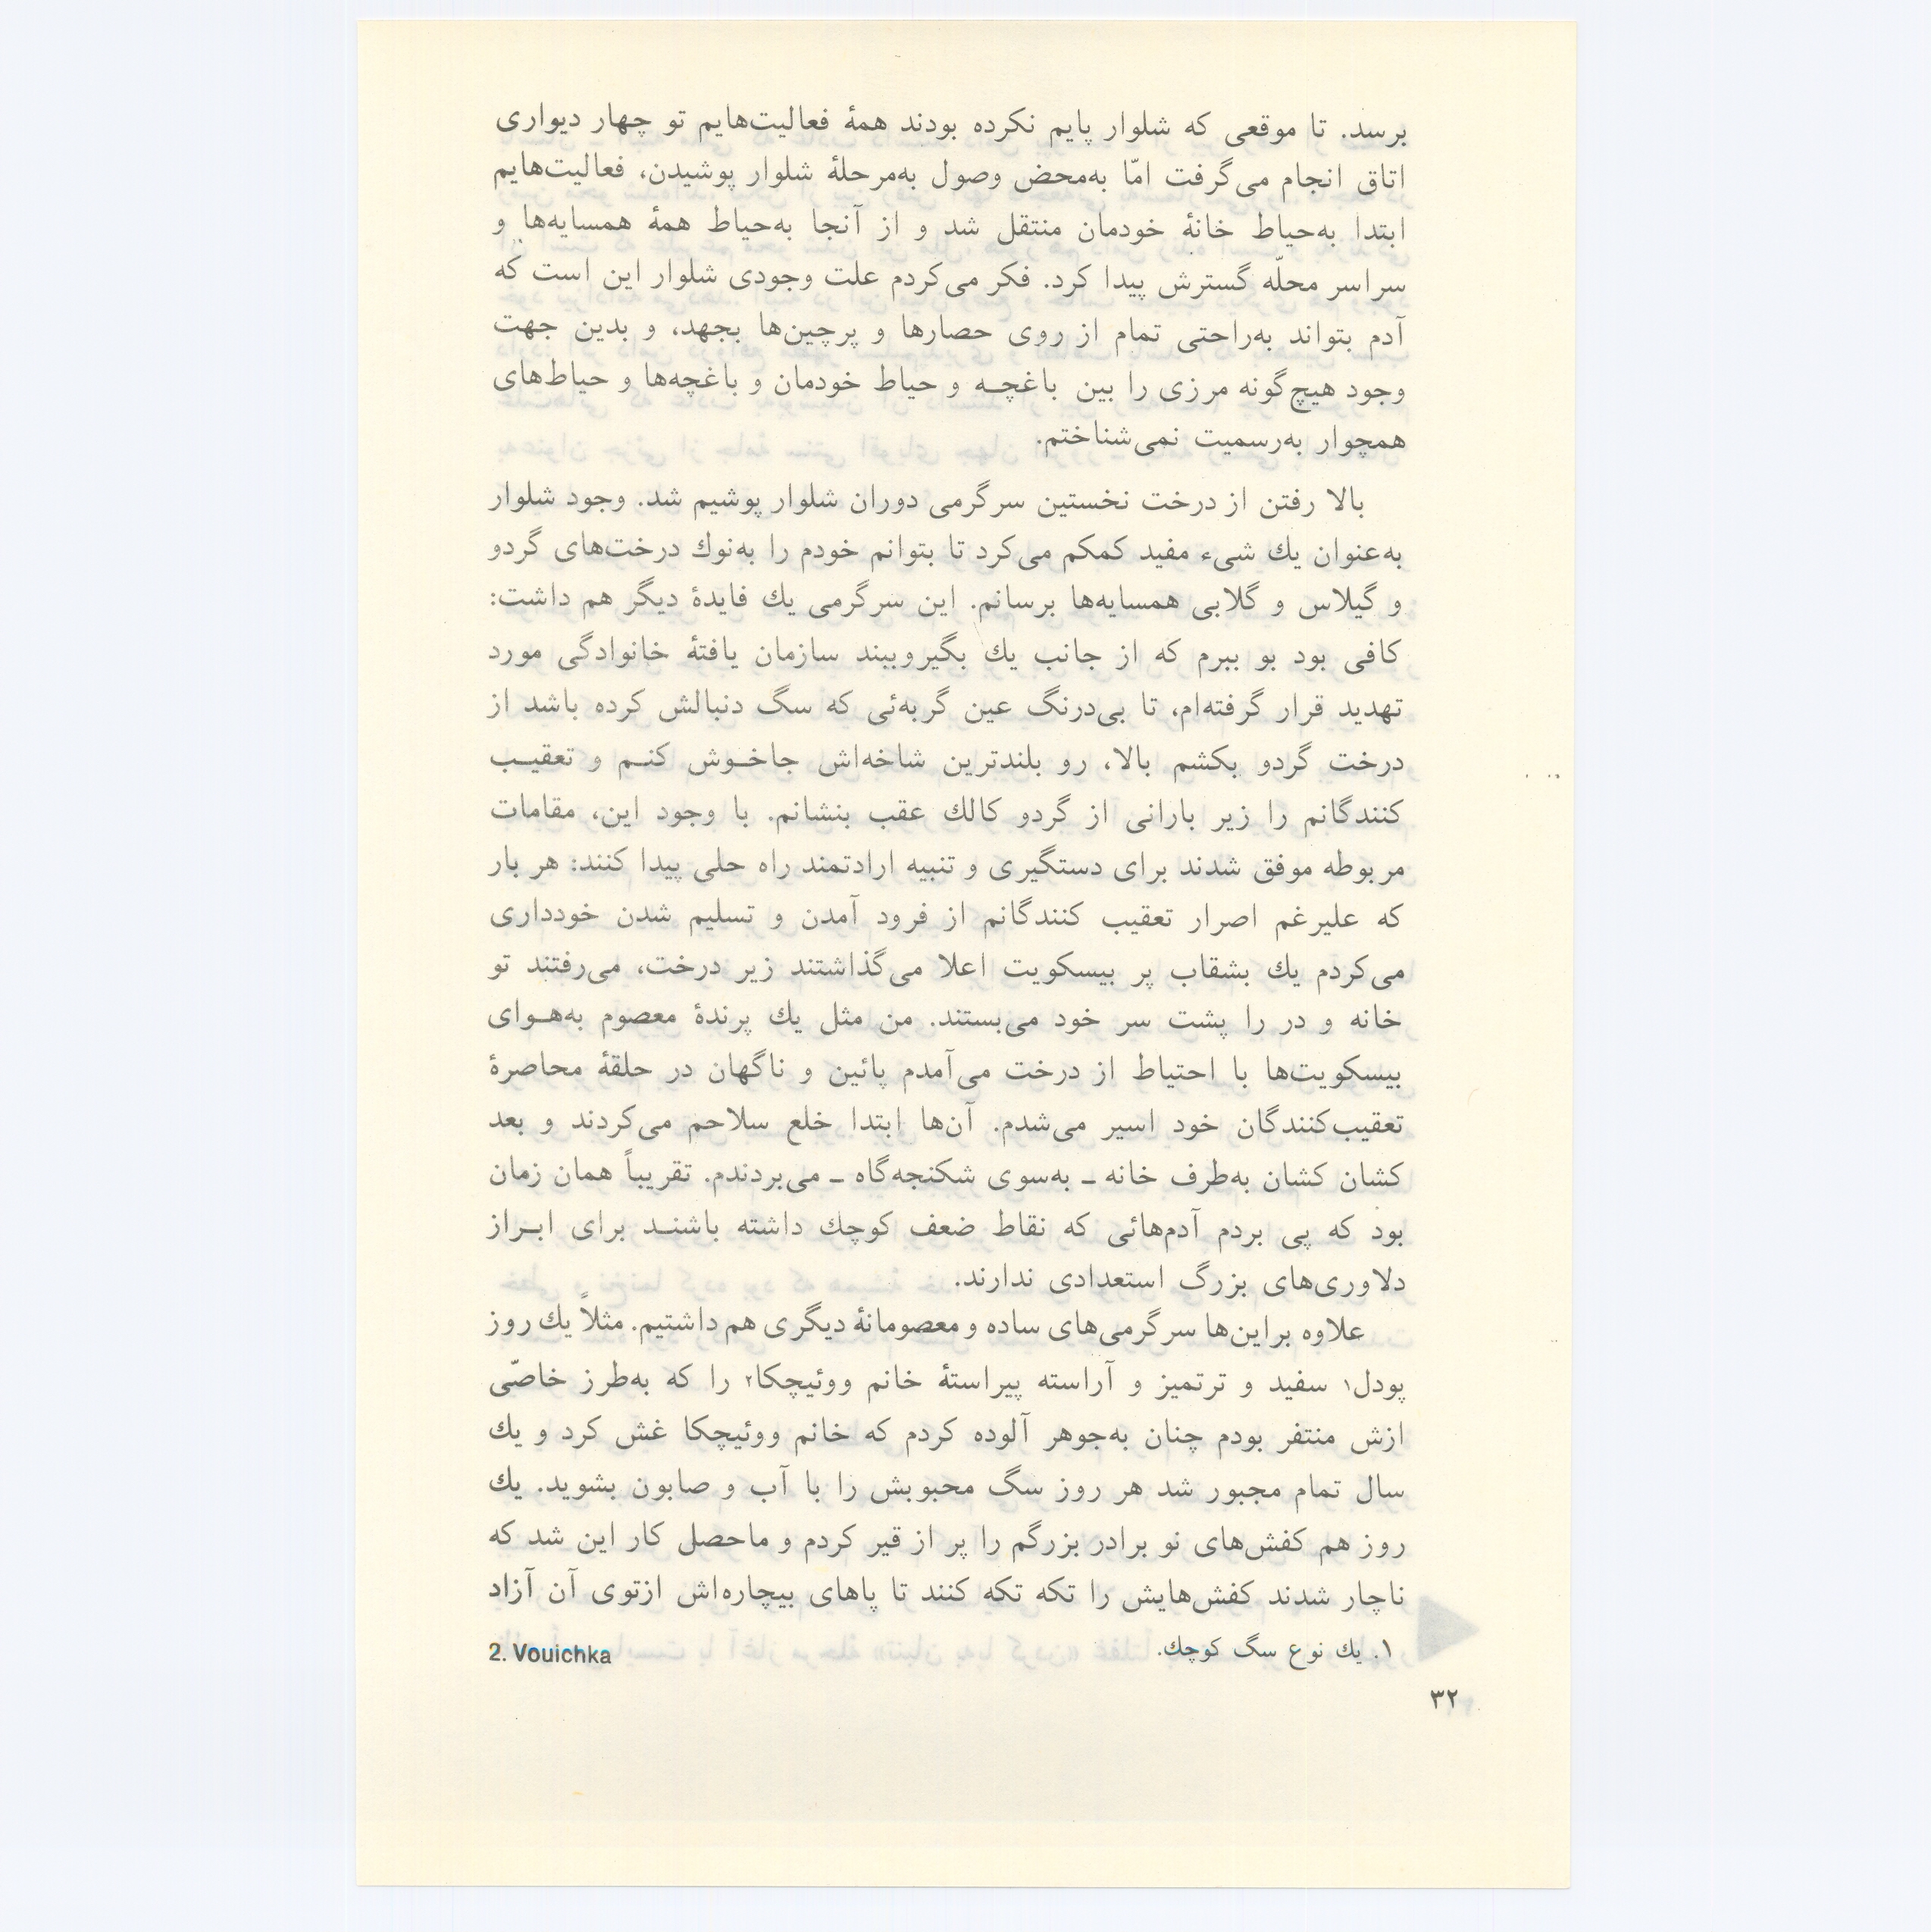 برسد. تا موقعی که شلوار پایم نکرده بودند همهٔ فعالیت‌هایم تو چهار دیواری
اتاق انجام می‌گرفت امّا به‌محض وصول به‌مرحلهٔ شلوار پوشیدن، فعالیت‌هایم
ابتدا به‌حیاط خانهٔ خودمان منتقل شد و از آنجا به‌حیاط همهٔ همسایه‌ها و
سراسر محلّه گسترش پیدا کرد. فکر می‌کردم علت وجودی شلوار این است که
آدم بتواند به‌راحتی تمام از روی حصارها و پرچین‌ها بجهد، و بدین جهت
وجود هیچ‌گونه مرزی را بین باغچـه و حیاط خودمان و باغچه‌ها و حیاط‌های
همچوار به‌رسمیت نمی‌شناختم.
بالا رفتن از درخت نخستین سرگرمی دوران شلوار پوشیم شد. وجود شلوار
به‌عنوان یك شیء مفید کمکم می‌کرد تا بتوانم خودم را به‌نوك درخت‌های گردو
و گیلاس و گلابی همسایه‌ها برسانم. این سرگرمی یك فایدهٔ دیگر هم داشت:
کافی بود بو ببرم که از جانب یك بگیروببند سازمان یافتهٔ خانوادگی مورد
تهدید قرار گرفته‌ام، تا بی‌درنگ عین گربه‌ئی که سگ دنبالش کرده باشد از
درخت گردو بکشم بالا، رو بلندترین شاخه‌اش جاخـوش کنـم و تعقیـب
کنندگانم را زیر بارانی از گردو کالك عقب بنشانم. با وجود این، مقامات
مربوطه موفق شدند برای دستگیری و تنبیه ارادتمند راه حلی پیدا کنند: هر بار
که علیرغم اصرار تعقیب کنندگانم از فرود آمدن و تسلیم شدن خودداری
می‌کردم یك بشقاب پر بیسکویت اعلا می‌گذاشتند زیر درخت، می‌رفتند تو
خانه و در را پشت سر خود می‌بستند. من مثل یك پرندهٔ معصوم به‌هـوای
بیسکویت‌ها با احتیاط از درخت می‌آمدم پائین و ناگهان در حلقهٔ محاصرهٔ
تعقیب‌کنندگان خود اسیر می‌شدم. آن‌ها ابتدا خلع سلاحم می‌کردند و بعد
کشان کشان به‌طرف خانه ـ به‌سوی شکنجه‌گاه ـ می‌بردندم. تقریباً همان زمان
بود که پی بردم آدم‌هائی که نقاط ضعف کوچك داشته باشنـد برای ابـراز
دلاوری‌های بزرگ استعدادی ندارند.
علاوه براین‌ها سرگرمی‌های ساده و معصومانهٔ دیگری هم داشتیم. مثلاً یك روز
پودل۱ سفید و ترتمیز و آراسته پیراستهٔ خانم ووئیچکا۲ را که به‌طرز خاصّی
ازش منتفر بودم چنان به‌جوهر آلوده کردم که خانم ووئیچکا غش کرد و یك
سال تمام مجبور شد هر روز سگ محبوبش را با آب و صابون بشوید. یك
روز هم کفش‌های نو برادر بزرگم را پر از قیر کردم و ماحصل کار این شد که
ناچار شدند کفش‌هایش را تکه تکه کنند تا پاهای بیچاره‌اش ازتوی آن آزاد
۱. یك نوع سگ کوچك.
2. Vouichka
۳۲